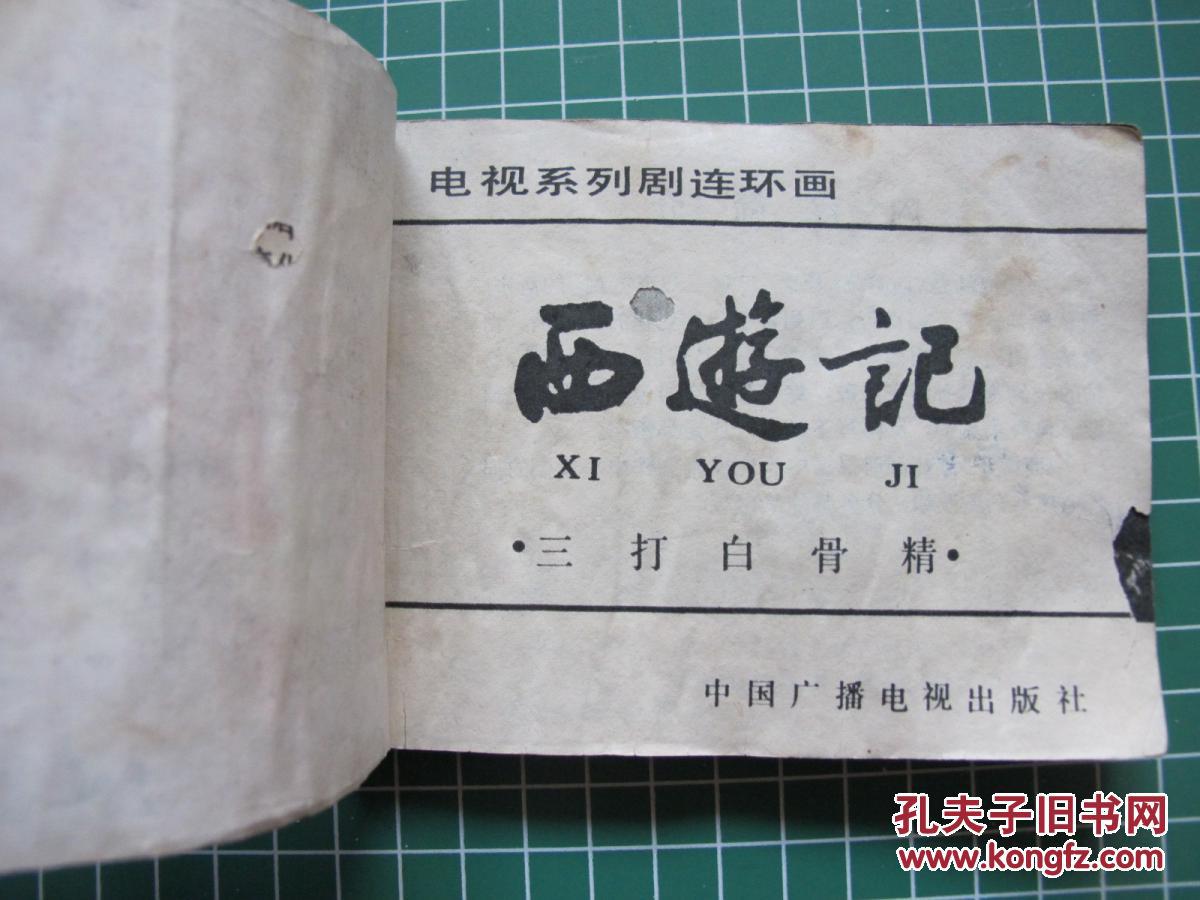 电视系列剧连环画
西遊記
XI YOU JI
·三打白骨精·
中国广播电视出版社
孔夫子旧书网
www.kongfz.com